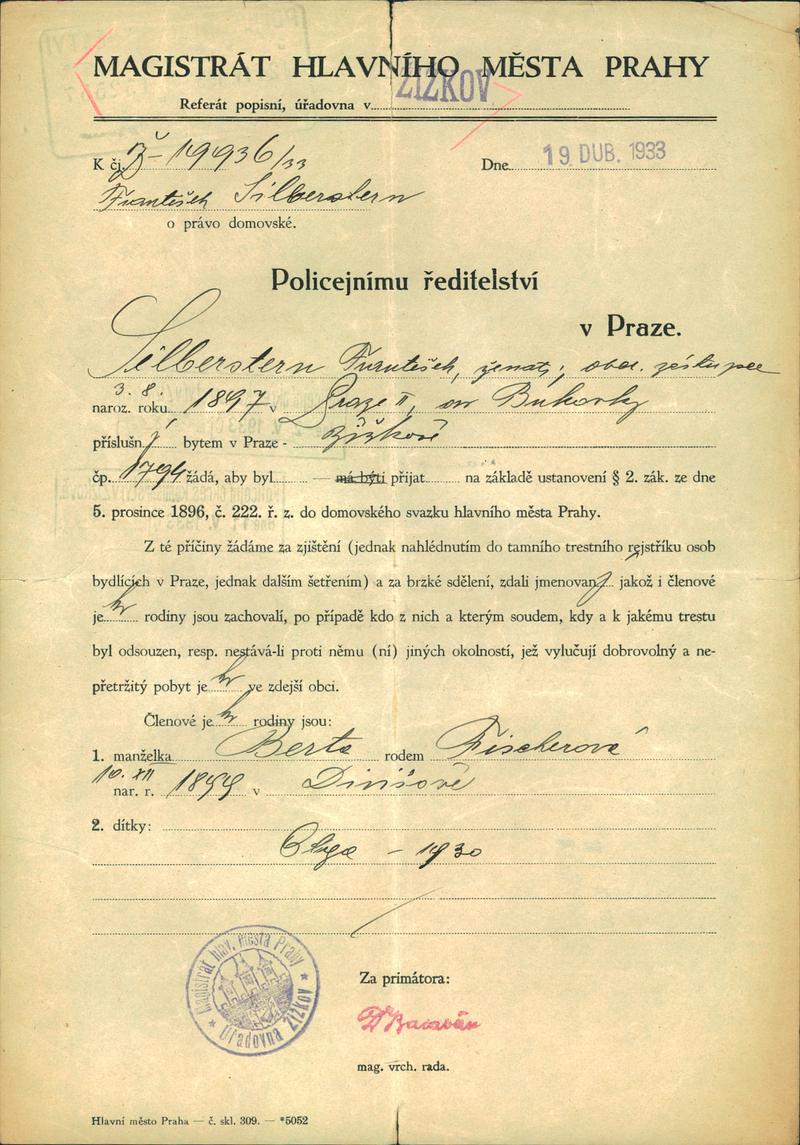 MAGISTRÁT HLAVNÍHO MĚSTA PRAHY
Referát popisní, úřadovna v ŽIZKOV
K čj. Ž-19936/33
Dne 19. DUB. 1933
František Silberstern
o právo domovské.
Policejnímu ředitelství
v Praze.
Silberstern František, ženatý, obch. zástupce
3. 8.
naroz. roku 1897 v Praze II, do Bukovky
příslušný bytem v Praze - Žižkově
čp. 1794 žádá, aby byl — má býti přijat na základě ustanovení § 2. zák. ze dne
5. prosince 1896, č. 222. ř. z. do domovského svazku hlavního města Prahy.
Z té příčiny žádáme za zjištění (jednak nahlédnutím do tamního trestního rejstříku osob
bydlících v Praze, jednak dalším šetřením) a za brzké sdělení, zdali jmenovaný jakož i členové
jeho rodiny jsou zachovalí, po případě kdo z nich a kterým soudem, kdy a k jakému trestu
byl odsouzen, resp. nestává-li proti němu (ní) jiných okolností, jež vylučují dobrovolný a ne-
přetržitý pobyt jeho ve zdejší obci.
Členové jeho rodiny jsou:
1. manželka Berta rodem Fischerová
10. XII
nar. r. 1899 v Divišově
2. dítky:
Olga – 1930
Magistrát hlav. města Prahy
Úřadovna ŽIŽKOV
Za primátora:
mag. vrch. rada.
Hlavní město Praha — č. skl. 309. — *5052